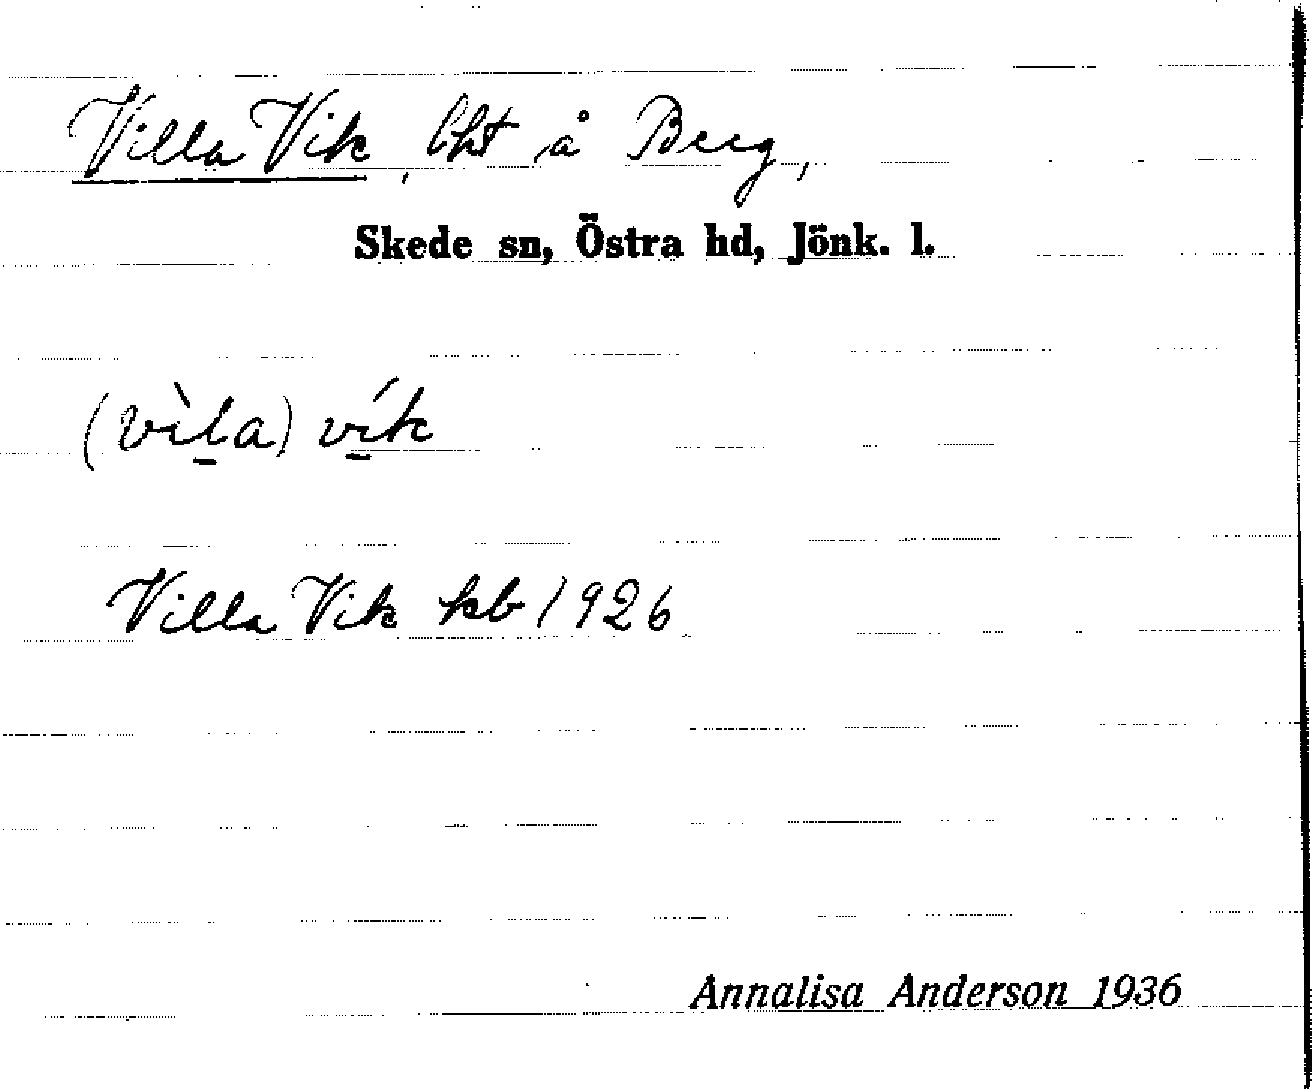 Villa Vik, lht å Berg,
Skede sn, Östra hd, Jönk. l.
(vìl̠a) ví̠k
Villa Vik kb 1926
Annalisa Anderson 1936